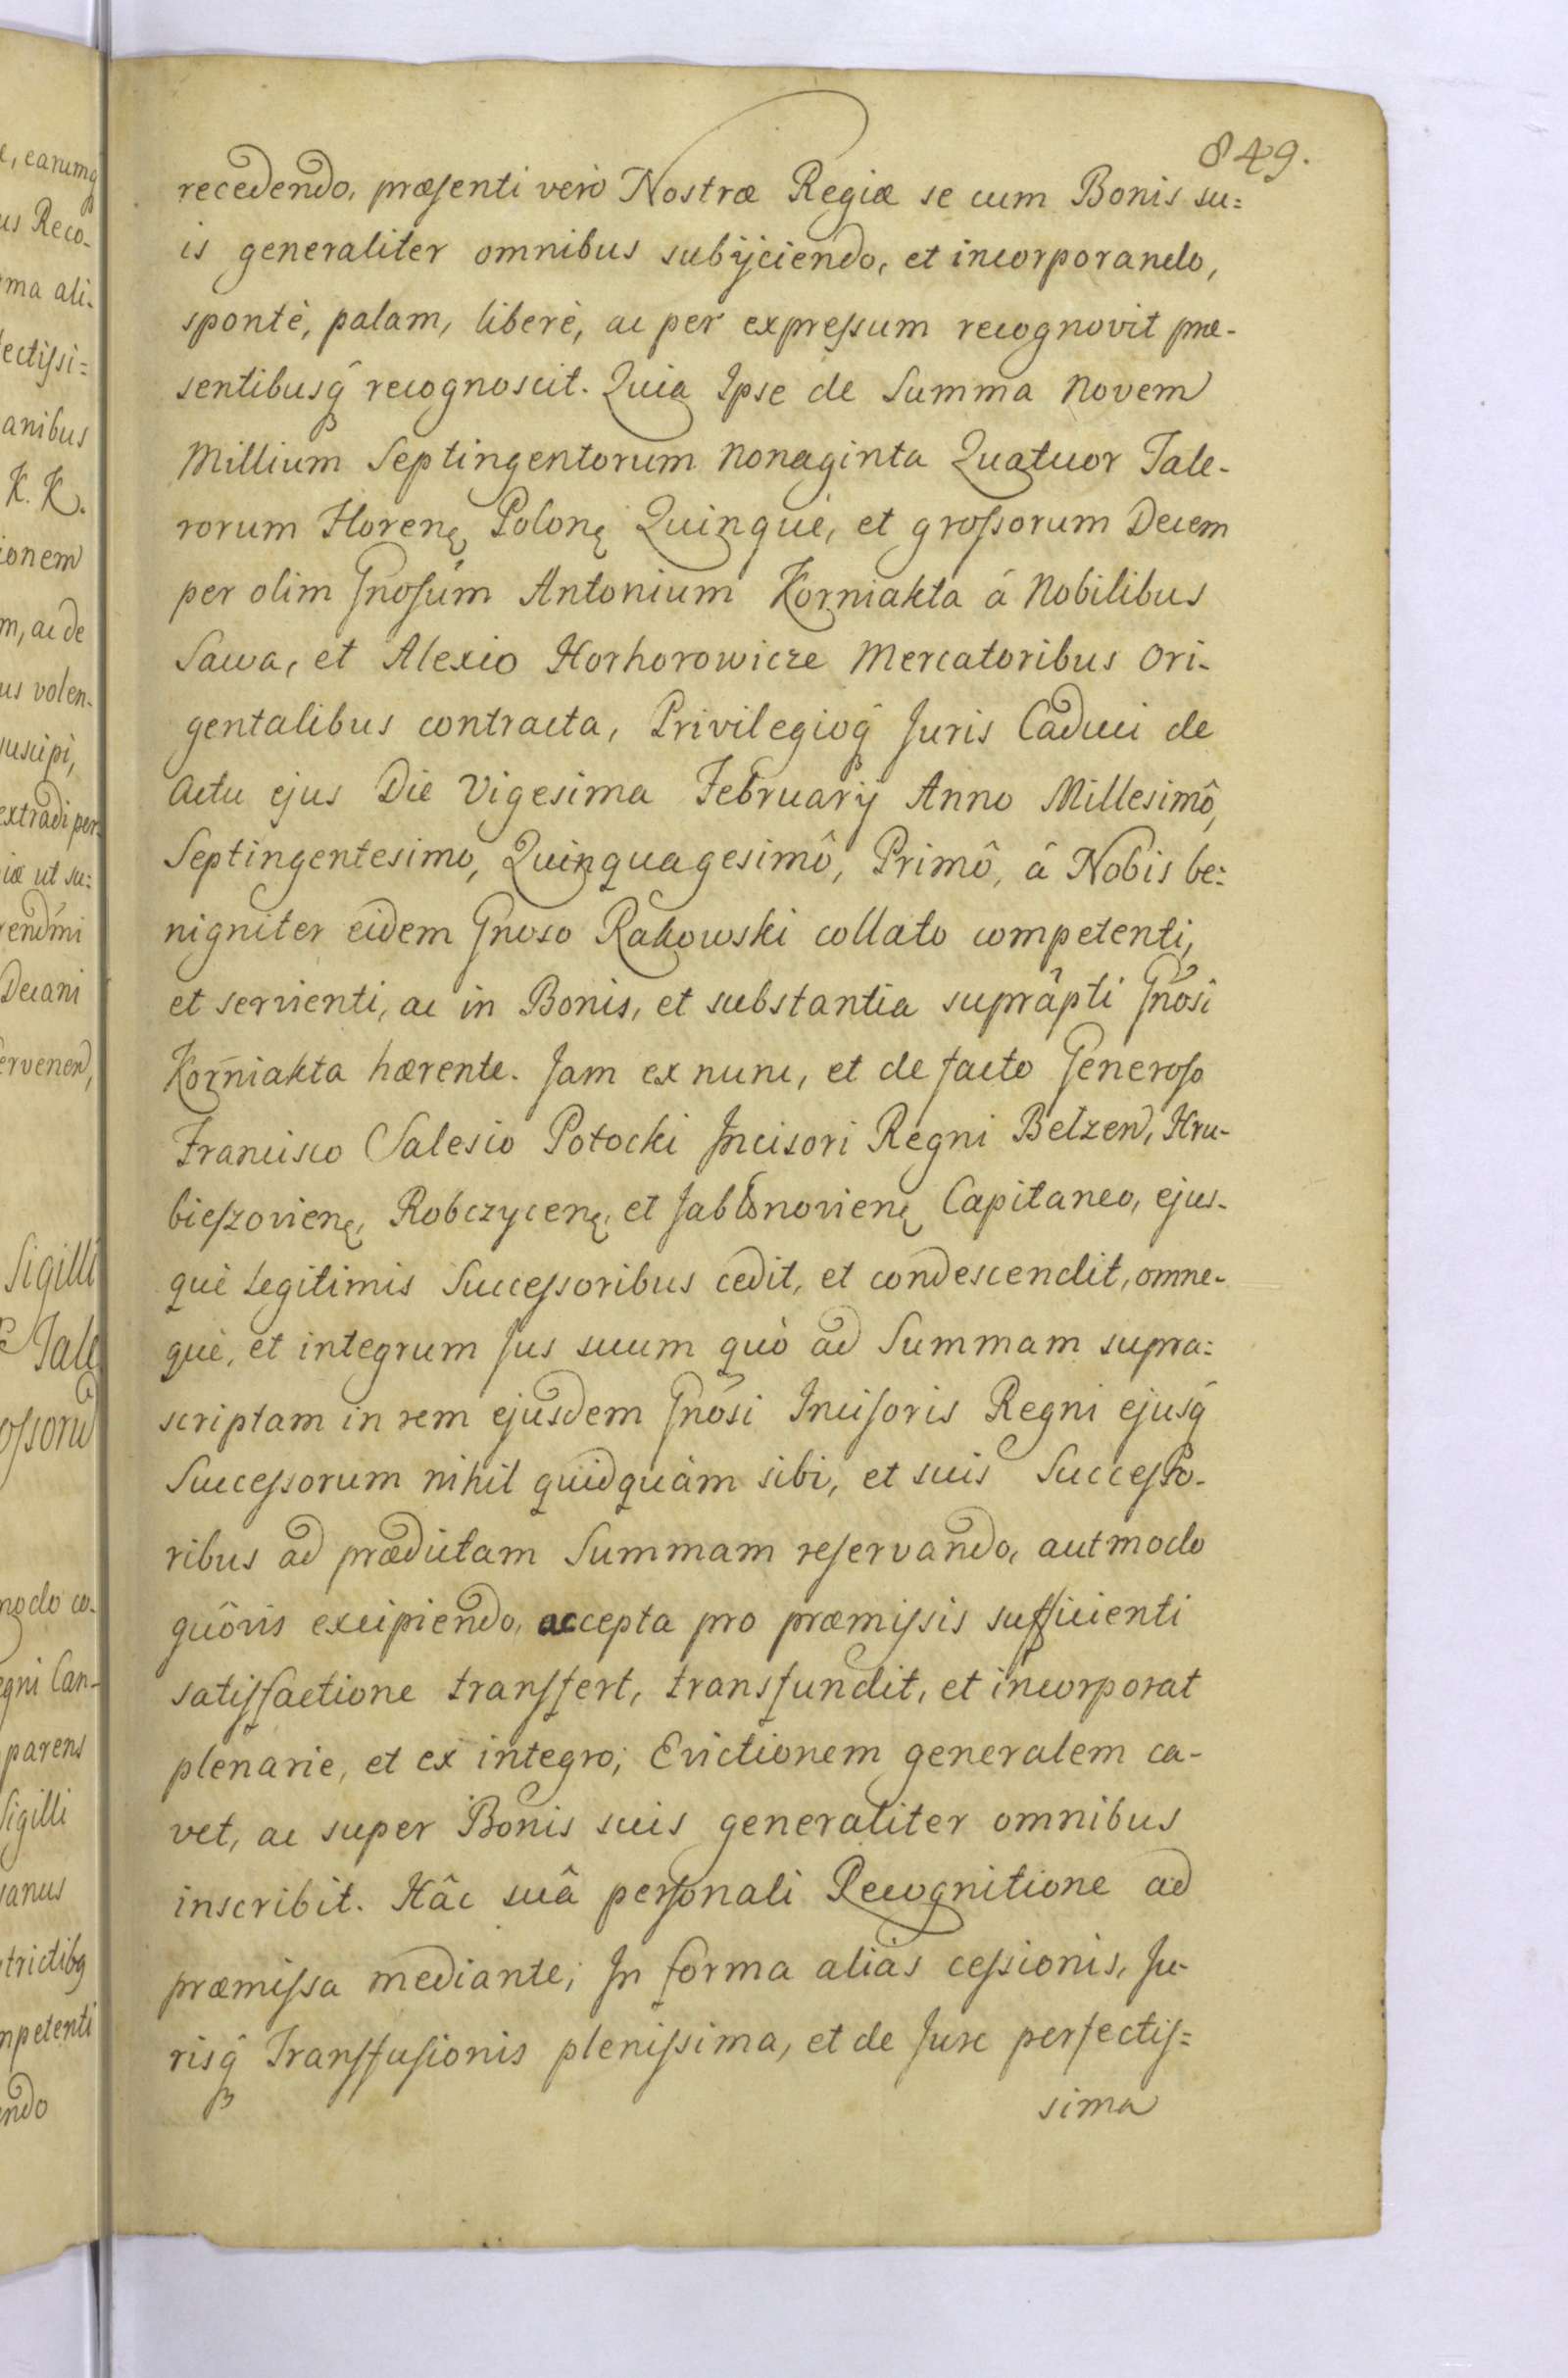 849.
recedendo, præsenti verò Nostræ Regiæ se cum Bonis su=
is generaliter omnibus subÿciendo, et incorporando,
spontè, palam, liberè, ac per expressum recognovit præ-
sentibusq̃ recognoscit. Quia Ipse de Summa Novem
Millium Septingentorum Nonaginta Quatuor Tale-
rorum Florenę Polonę Quinquè, et grossorum Decem
per olim Gnosũm Antonium Korniakta á Nobilibus
Sawa, et Alexio Horhorowicze Mercatoribus Ori-
gentalibus contracta, Privilegioq̃ Juris Caduci de
Actu ejus Die Vigesima Februarÿ Anno Millesimô,
Septingentesimo, Quinquagesimô, Primô, â Nobis be=
nigniter eidem Gnoso Rakowski collato competenti,
et servienti, ac in Bonis, et substantia suprâpti Gnõsi
Korniakta hærente. Jam ex nunc, et de facto Generoso
Francisco Salesio Potocki Incisori Regni Belzen, Hru-
bieszovienę, Robczycenę, et Jabłonovienę Capitaneo, ejus-
què Legitimis Successoribus cedit, et condescendit, omne-
què, et integrum Jus suum quò ad Summam supra=
scriptam in rem ejusdem Gnõsi Incisoris Regni ejusq̃
Successorum nihil quidquàm sibi, et suis Successo-
ribus ad prædictam Summam reservando, aut modo
quôvis excipiendo, accepta pro præmissis sufficienti
satisfactione transfert, transfundit, et incorporat
plenarie, et ex integro; Evictionem generalem ca-
vet, ac super Bonis suis generaliter omnibus
inscribit. Hâc suâ personali Recognitione ad
præmissa mediante; In forma aliàs cessionis, Ju-
risq̃ Transfusionis plenissima, et de Jure perfectis=
sima